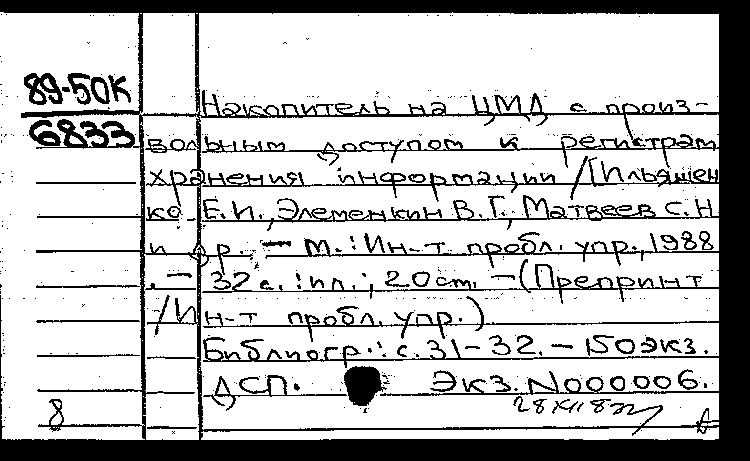 89-50К
6833
Накопитель на ЦМД с произ-
вольным доступом к регистрам
хранения информации /[Ильяшен
ко Е.И., Элеменкин В.Г., Матвеев С.Н
и др. — М.: Ин-т пробл. упр., 1988
. — 32 с. : ил.; 20 см. — (Препринт
/Ин-т пробл. упр.)
Библиогр.: с. 31-32. — 150 экз.
ДСП. Экз. N000006.
8